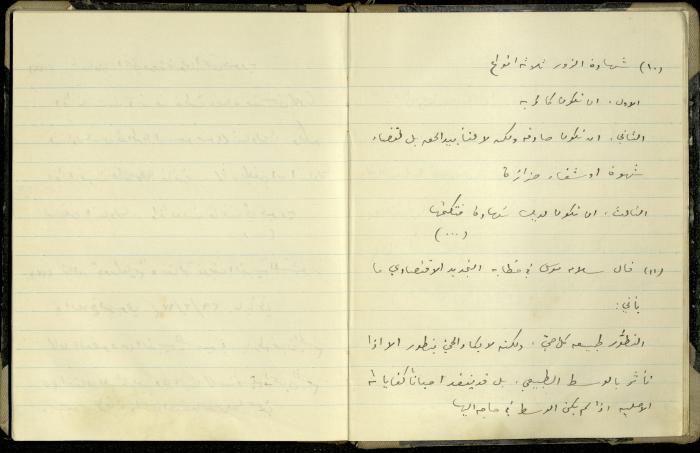 (١٠) شهادة الزور ثلاثة انواع
الاول. ان تكون كاذبة
الثاني. ان تكون صادقة ولكنه لا لتأييد الحق بل لقضاء
شهوة او شفاء حزازة
الثالث. ان تكون لديك شهادة فتكتمها
(...)
(١١) قال سلامه موسى في خطابه التجديد الاقتصادي ما
يأتي:
التطوّر طبيعة كل حي. ولكنه لا يكاد الحي يتطور الا اذا
تأثر بالوسط الطبيعي. بل قد يفقد احيانا كفاياته
الاصلية اذا لم يكن الوسط في حاجة اليها